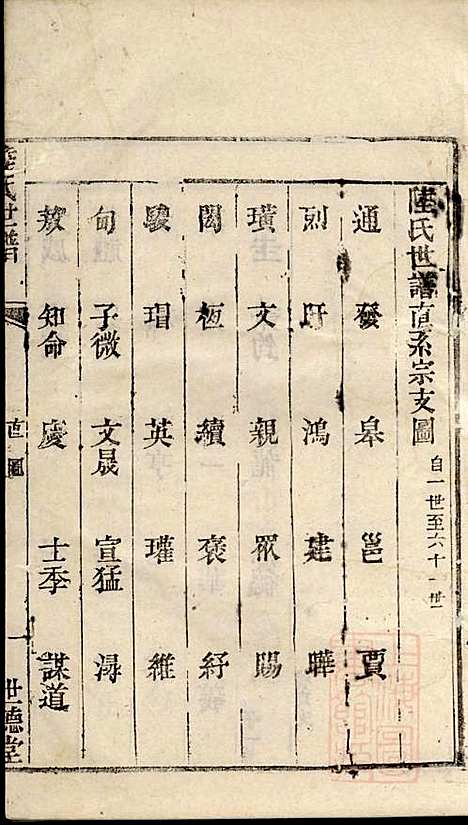 陸氏世譜直系宗支圖 自一世至六十一世
通 發 皋 邕 賈
烈 盱 鴻 建 曄
璜 文 親 眾 賜
閎 恆 續 褒 紆
駿 瑁 英 瓘 維
甸 子微 文晟 宣猛 潯
敖 知命 慶 士季 謀道
陸氏世譜 直圖 一 世德堂